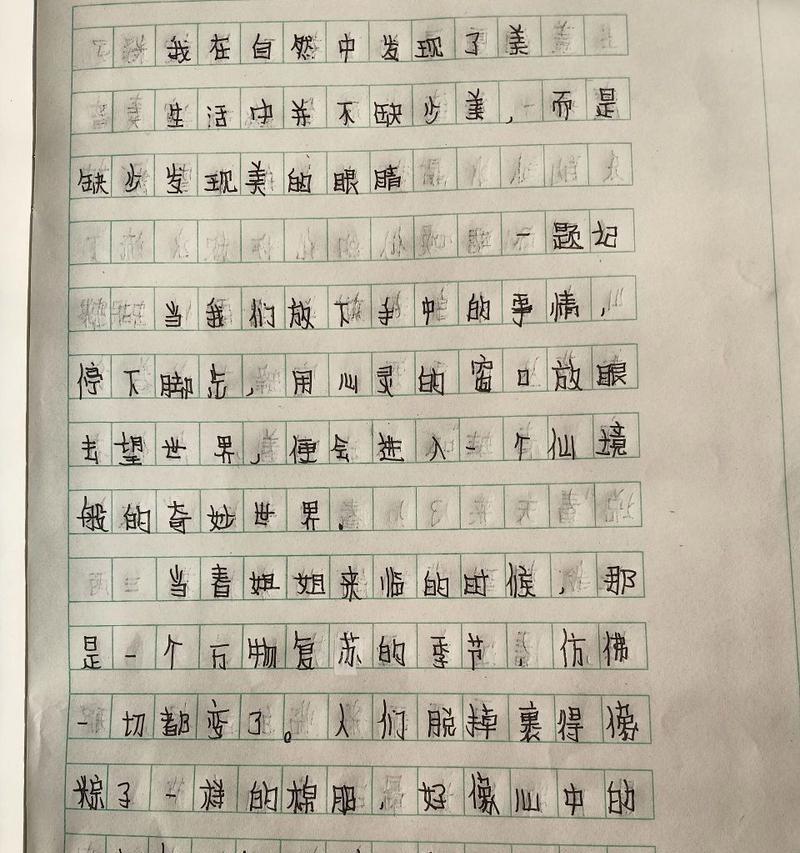 我在自然中发现了美
生活中并不缺少美，而是
缺少发现美的眼睛
一题记
当我们放下手中的事情，
停下脚步，用心灵的窗口放眼
去望世界，便会进入一个仙境
般的奇妙世界.
当春姐姐来临的时候，那
是一个万物复苏的季节，仿佛
一切都变了。人们脱掉裹得像
粽子一样的棉服，好像心中的